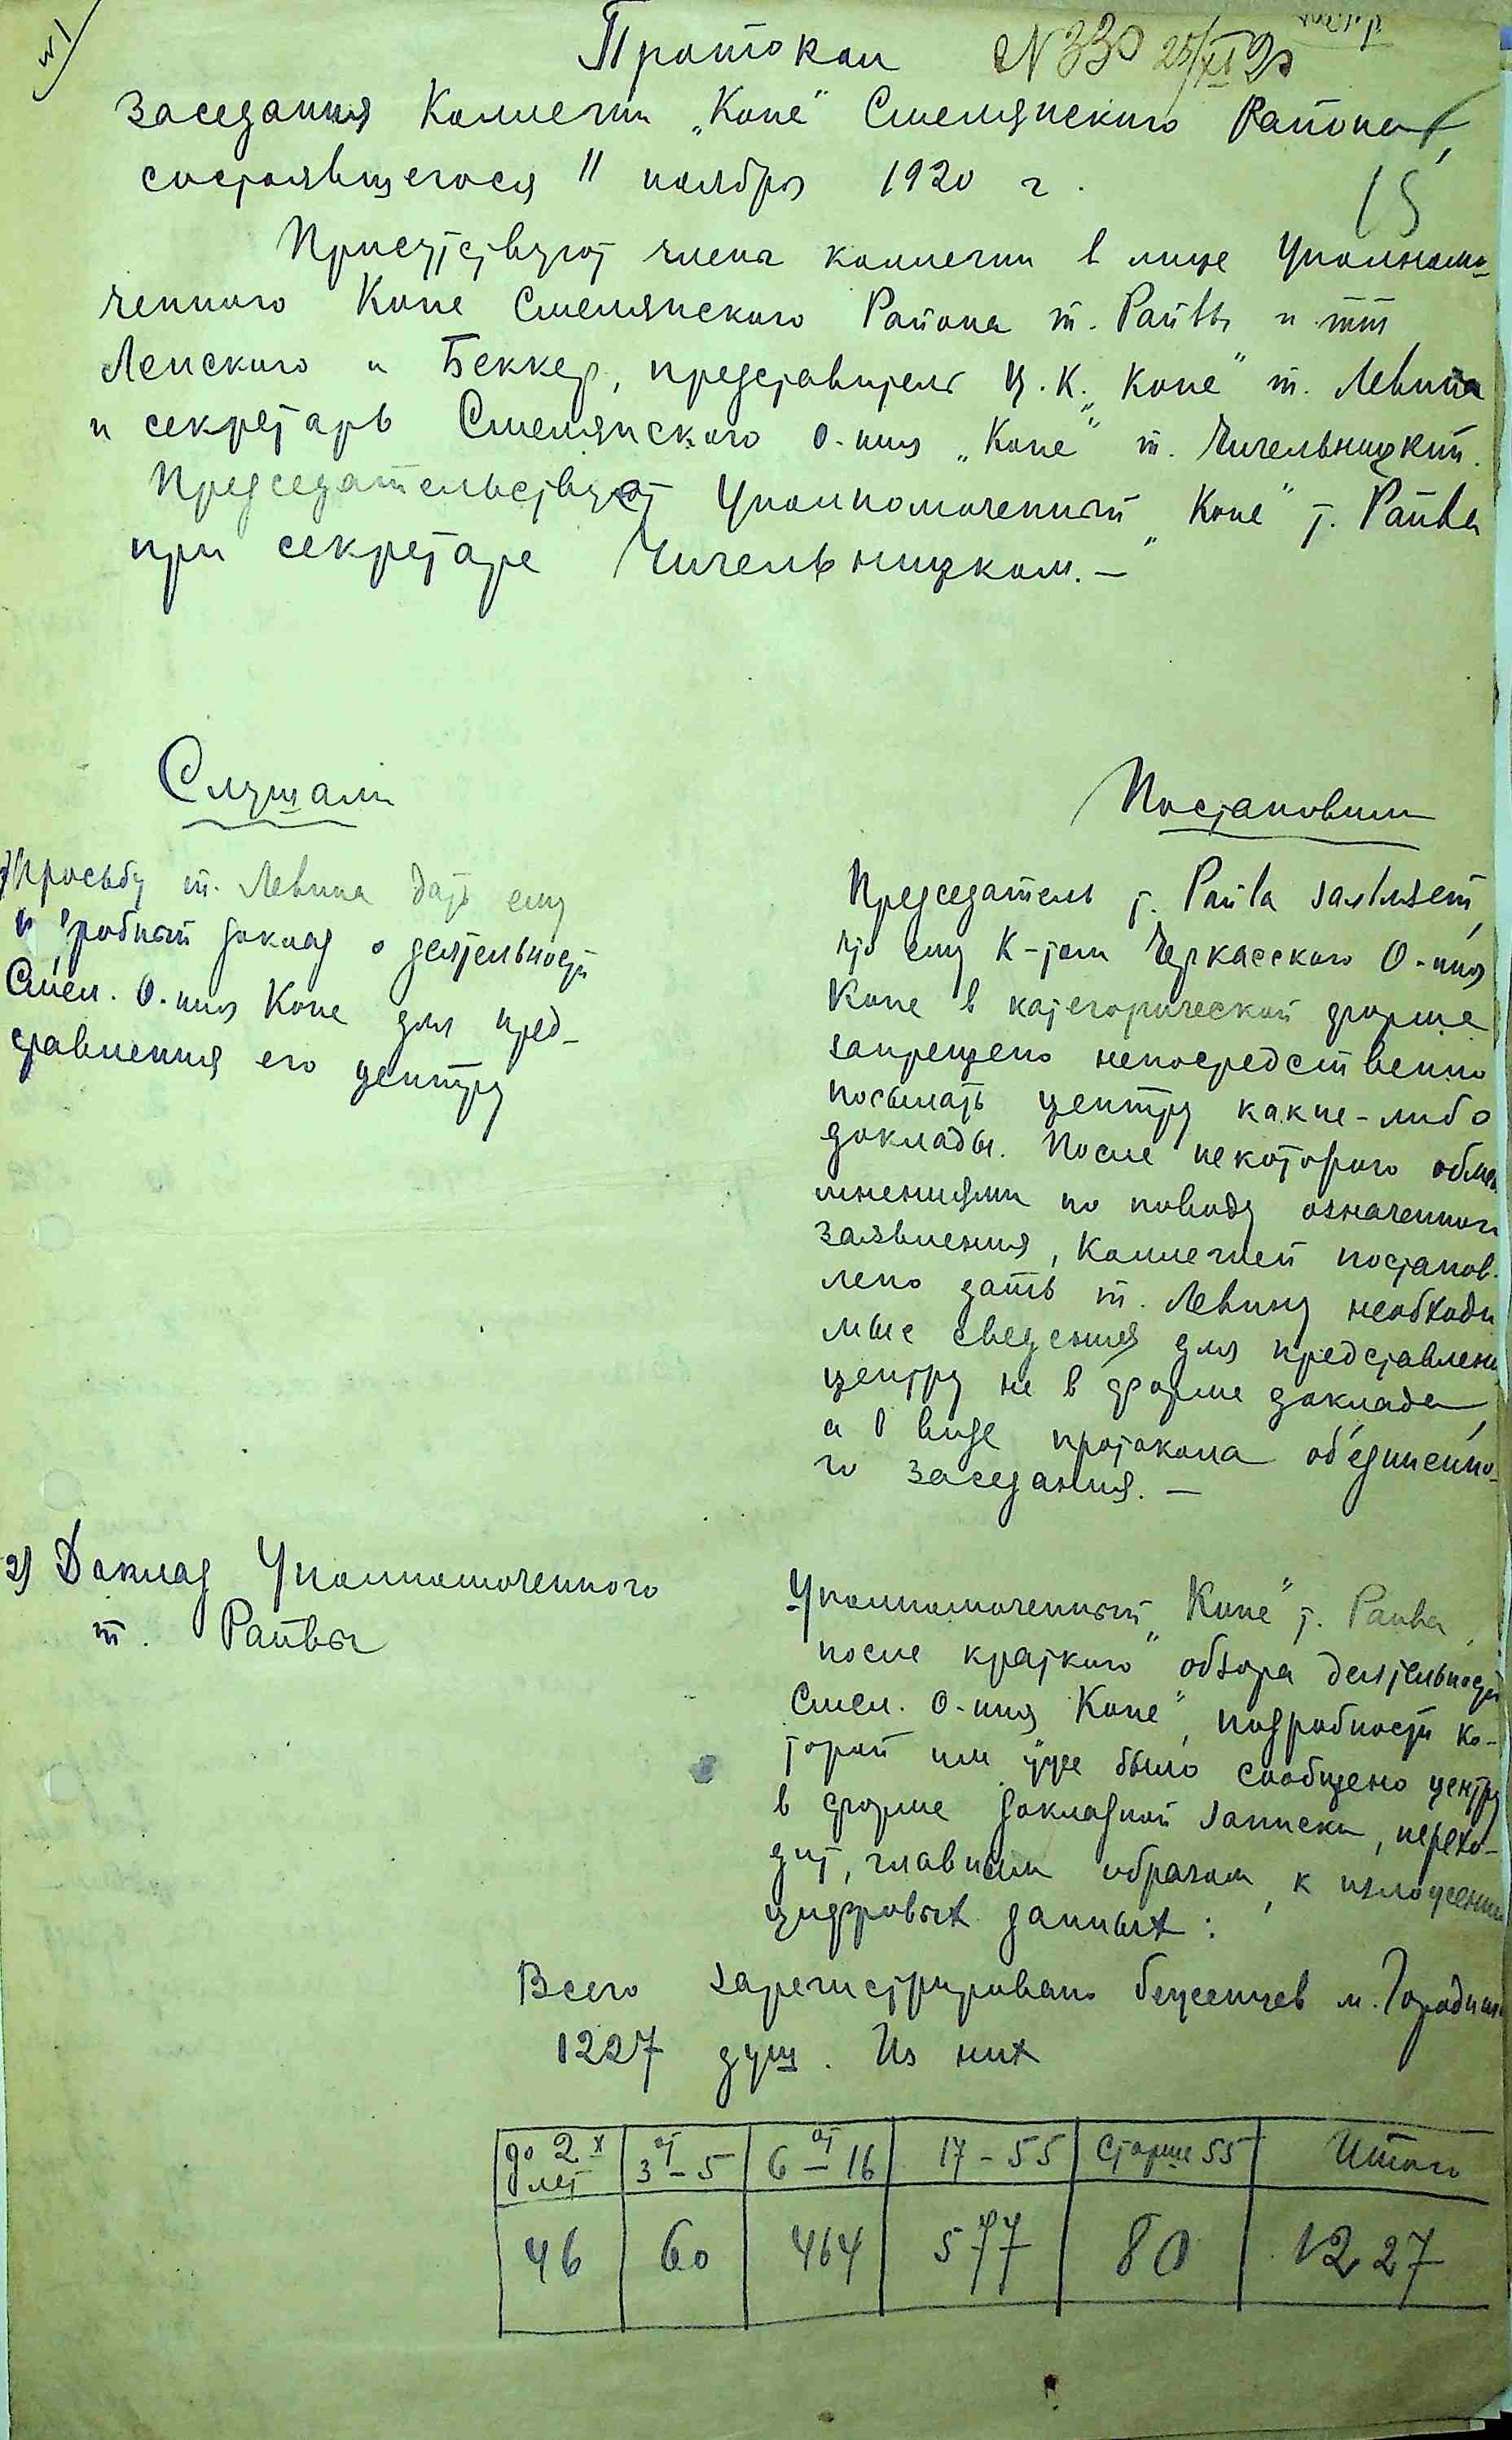 Протокол № 330 25/XI 20
заседания Коллегии „Копе" Смелянского Района,
состоявшегося 11 ноября 1920 г.
15
Присутствуют члены коллегии в лице Уполномо-
ченного Копе Смелянского Района т. Райвы и т.т.
Ленского и Беккер, представитель Ц.К. „Копе" т. Левина
и секретарь Смелянского О-ния „Копе" т. Чичельницкий.
Председательствует Уполномоченный „Копе" т. Райва
при секретаре Чичельницком. —
Слушали
1) Просьбу т. Левина дать ему
подробный доклад о деятельности
Смел. О-ния Копе для пред-
ставления его центру
Постановили
Председатель т. Райва заявляет,
что ему К-том Черкасского О-ния
Копе в категорической форме
запрещено непосредственно
посылать центру какие-либо
доклады. После некоторого обмен
мнениями по поводу означенного
заявления, Коллегией постанов-
лено дать т. Левину необходи
мые сведения для представлени
центру не в форме доклада,
а в виде протокола об'единенно-
го заседания. —
2) Доклад Уполномоченного
т. Райвы
Уполномоченный „Копе" т. Райва,
после краткого обзора деятельности
Смел. О-ния „Копе", подробности ко-
торой им уже было сообщено центру
в форме докладной записки, перехо-
дит, главным образом, к изложению
цифровых данных:
Всего зарегистрировано беженцев м. Городище
1227 душ. Из них
до 2х лет | от 3 – 5 | от 6 – 16 | 17 – 55 | Старше 55 | Итого
46 | 60 | 464 | 577 | 80 | 1227